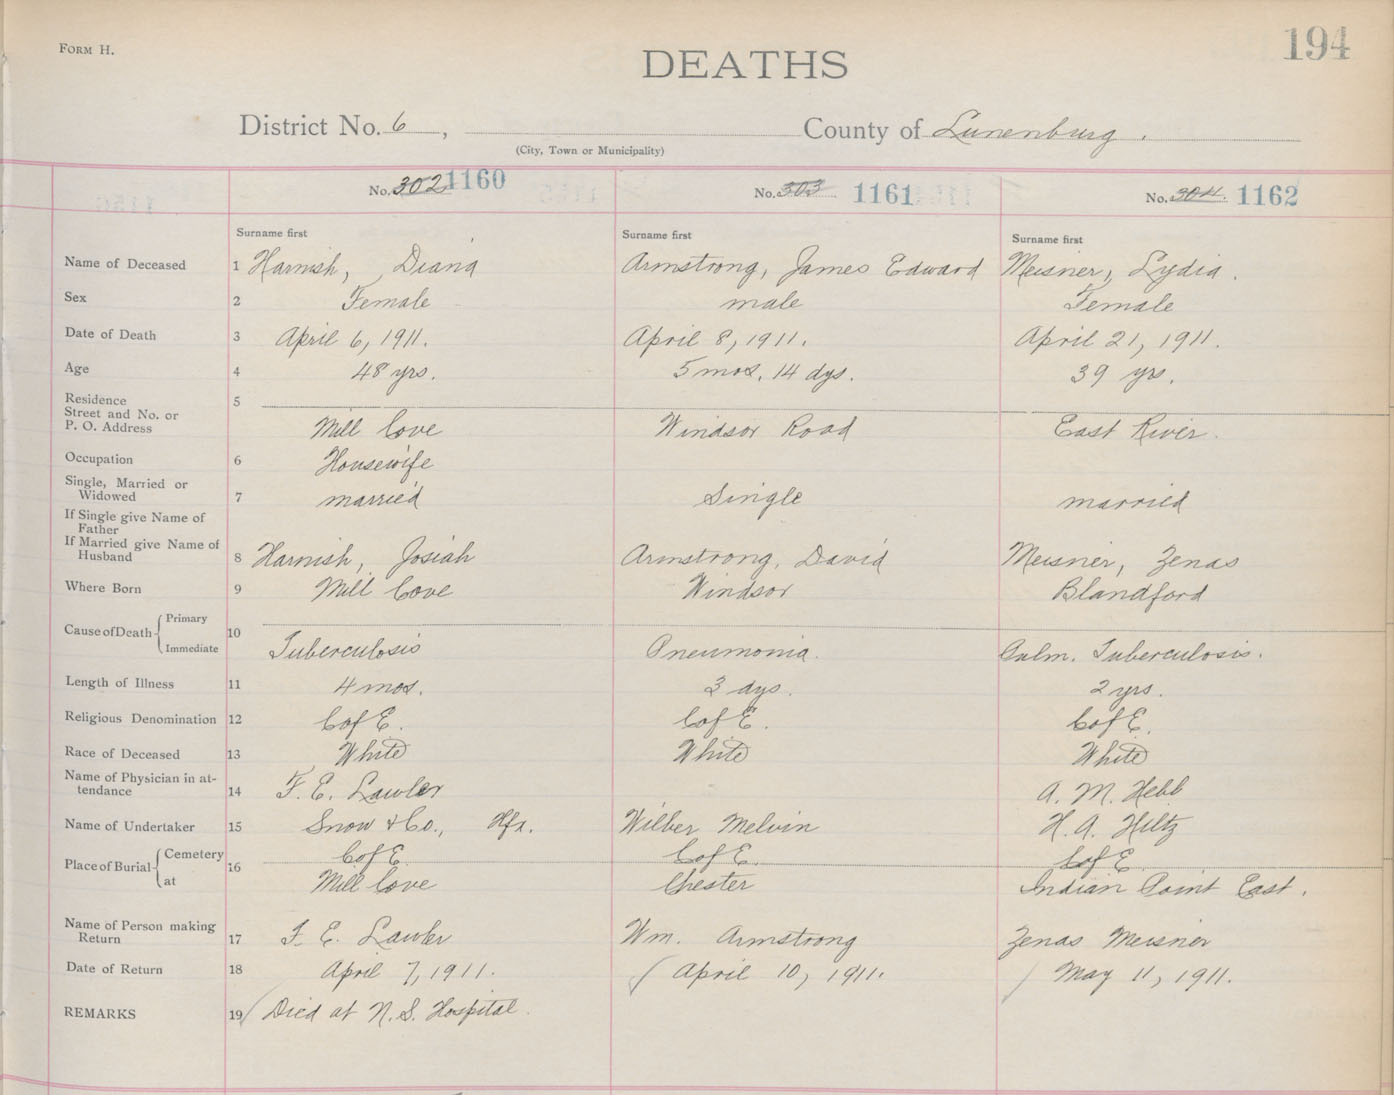 Form H.
194
DEATHS
District No. 6, County of Lunenburg.
(City, Town or Municipality)
No. 302 1160 No. 303 1161 No. 304. 1162
Surname first Surname first Surname first
Name of Deceased 1 Harnish, Diana Armstrong, James Edward Meisner, Lydia.
Sex 2 Female male Female
Date of Death 3 April 6, 1911. April 8, 1911. April 21, 1911.
Age 4 48 yrs. 5 mos. 14 dys. 39 yrs.
Residence 5
Street and No. or
P. O. Address Mill Cove Windsor Road East River.
Occupation 6 Housewife
Single, Married or
Widowed 7 married Single married
If Single give Name of
Father
If Married give Name of
Husband 8 Harnish, Josiah Armstrong, David Meisner, Zenas
Where Born 9 Mill Cove Windsor Blandford
Cause of Death Primary 10
Immediate Tuberculosis Pneumonia. Pulm. Tuberculosis.
Length of Illness 11 4 mos. 3 dys. 2 yrs.
Religious Denomination 12 C of E. C of E. C of E.
Race of Deceased 13 White White White
Name of Physician in at-
tendance 14 F. E. Lawler A. M. Hebb
Name of Undertaker 15 Snow & Co., Hfx. Wilber Melvin H. A. Hiltz
Place of Burial Cemetery 16 C of E. C of E. C of E.
at Mill Cove Chester Indian Point East.
Name of Person making
Return 17 F. E. Lawler Wm. Armstrong Zenas Meisner
Date of Return 18 April 7, 1911. April 10, 1911. May 11, 1911.
REMARKS 19 Died at N. S. Hospital.